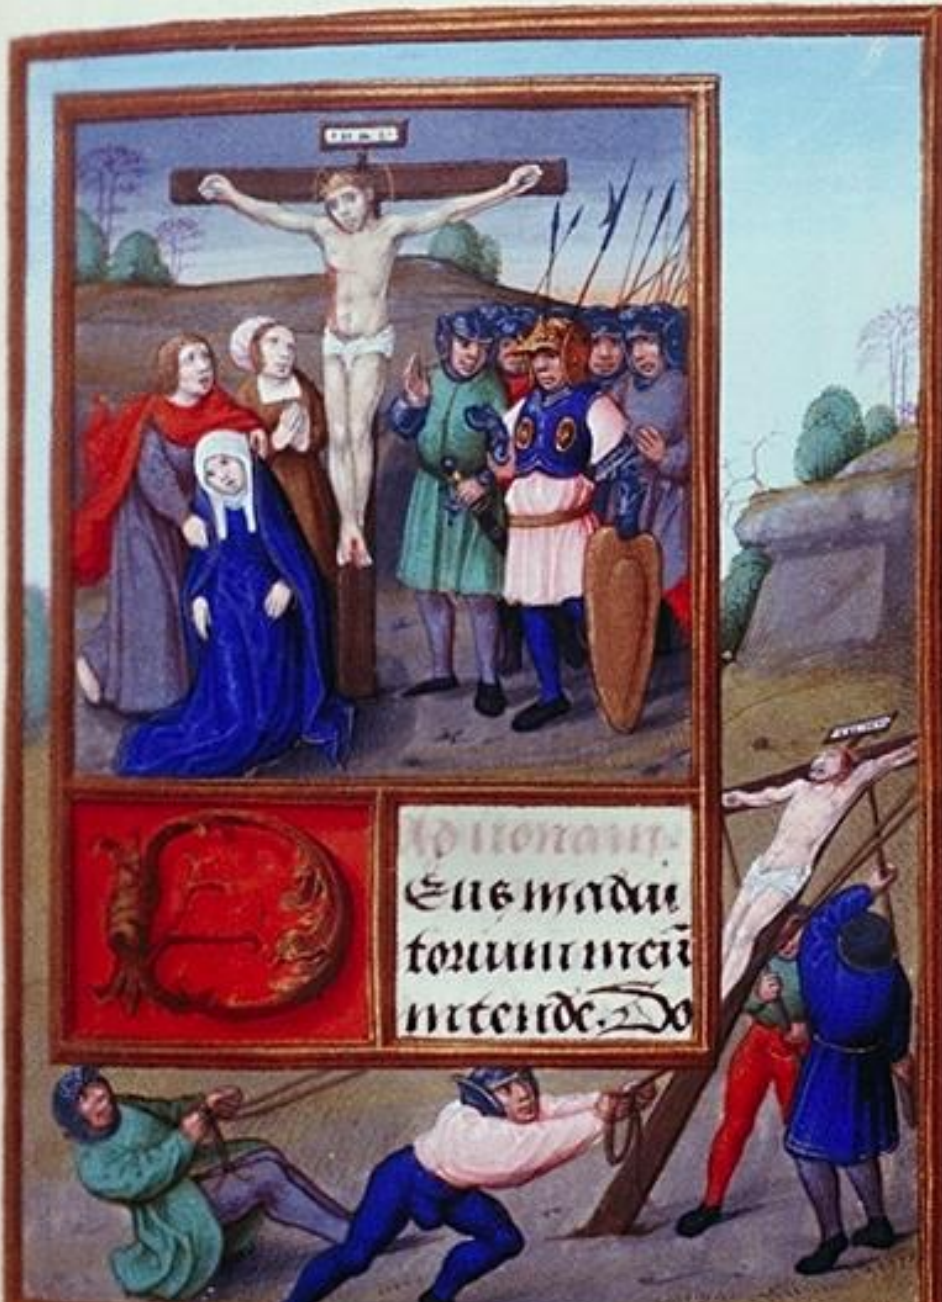 INRI
Ad nonam.
Eus in adiu
torium meū
intende. Do